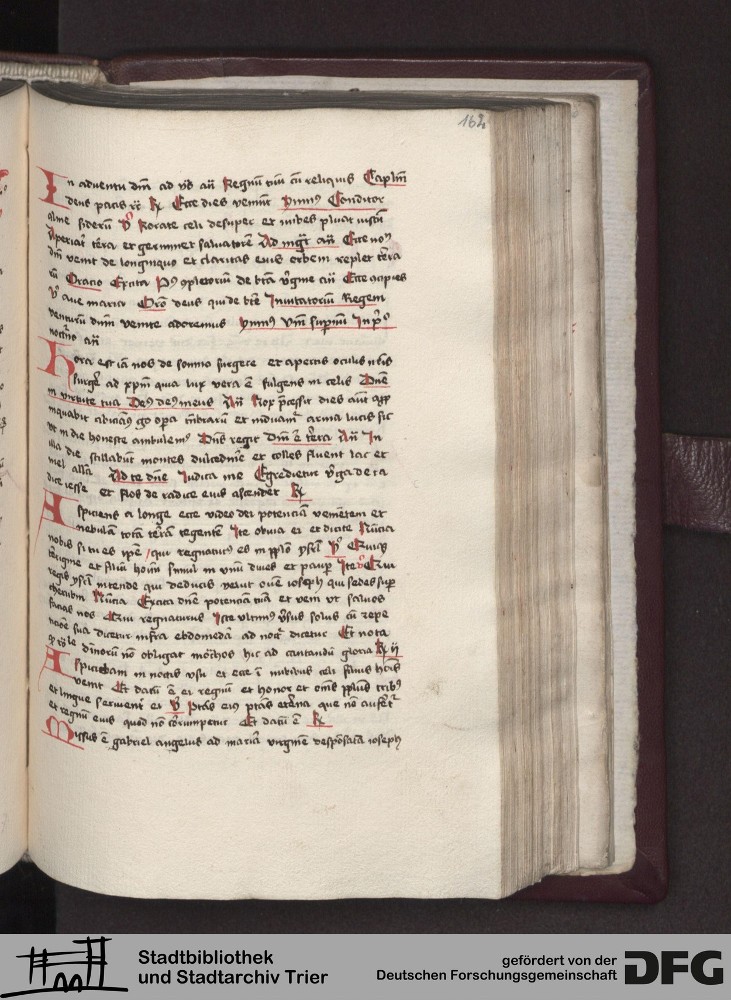 162
In adventu dm̄ ad vō añ Regnū tuū cū reliquis Caplm̄
deus pacis rc̄ R Ecce dies veniūt ymnus Conditor
alme siderū V Rorate celi desuper et nubes pluāt iustū
Aperiat terra et germinet salvatorē Ad mgt añ Ecce noīs
dm̄ venit de longinquo et claritas eius orbem replet terra
rū Oracio Excita completoriū de btā v̄gine añ Ecce
V ave maria Orō deus qui de btē Invitatoriū Regem
venturū dnm̄ venite adoremus ymnus Vm̄ supnū In p
noctno añ
Hora est iā nos de somno surgere et apertis oculis nrīs
surgē ad xpm̄ quia lux vera ē fulgens in celis Dnē
in virtute tua Deus deus meus Añ Nox p̄cessit dies aūt
go opa tn̄brarū et induam arma lucis sic
ut in die honeste ambulemus Dns regit Dm̄ ē terra Añ In
illa die stillabūt montes dulcedinē et colles fluent lac et
mel alla Ad te dnē Iudica me Egredietur v̄ga de ra
dice iesse et flos de radice eius ascendet R
Aspiciens a longe ecce video dei potenciā venientem et
nebulā totā terrā tegentē Ite obvia ei et dicite Nūcia
nobis si tu es ipē qui regnaturus es in pplō ysrl̄ V
terrigine et filii hoīm simul in unū dives et paup Ite V Qui
regis ysrl̄ intende qui deducis velut ovē ioseph qui sedes sup
cherubin Nūcia Excita dnē potenciā tuā et veni ut salvos
facias nos Qui regnaturus Iste ultimus v̄sus solus cū repe
sua dicetur infra ebdomedā ad noct dicetur Et nota
le dinorū nō obligat hic ad cantandū gloria R ii
Aspiciebam in noctis visu et ecce ī nubibus celi filius hoīs
venit Et datū ē ei regnū et honor et omīs pplūs tribus
et lingue servient ei V Ptas eius ptas eterna que nō aufert
et regnū eius quod nō corrumpetur Et datū ē R
Missus ē gabriel angelus ad mariā virginē desponsatā ioseph
Stadtbibliothek
und Stadtarchiv Trier
gefördert von der
Deutschen Forschungsgemeinschaft
DFG